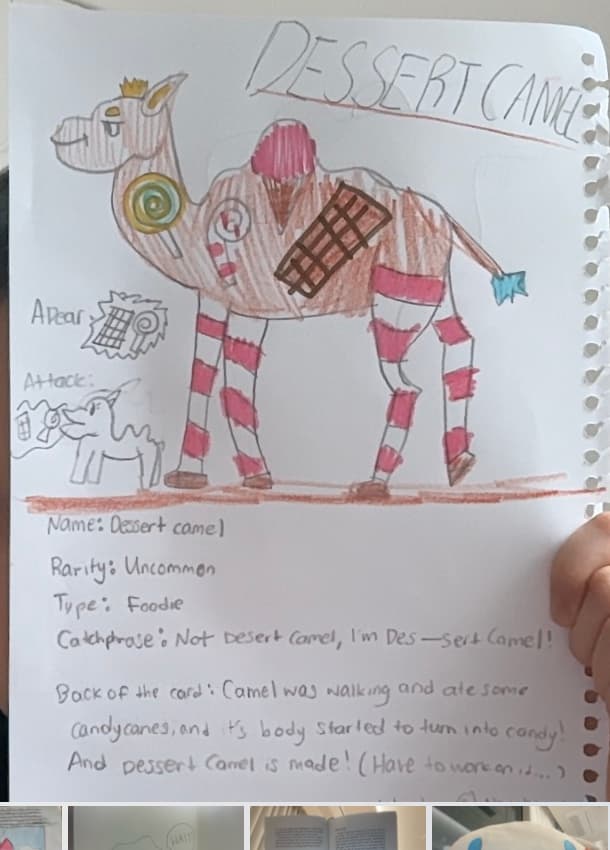 DESSERT CAMEL
Apear:
Attack:
Name: Dessert camel
Rarity: Uncommon
Type: Foodie
Catchphrase: Not Desert Camel, I'm Des—sert Camel!
Back of the card: Camel was walking and ate some
candycanes, and it's body started to turn into candy!
And Dessert Camel is made! (Have to work on it...)